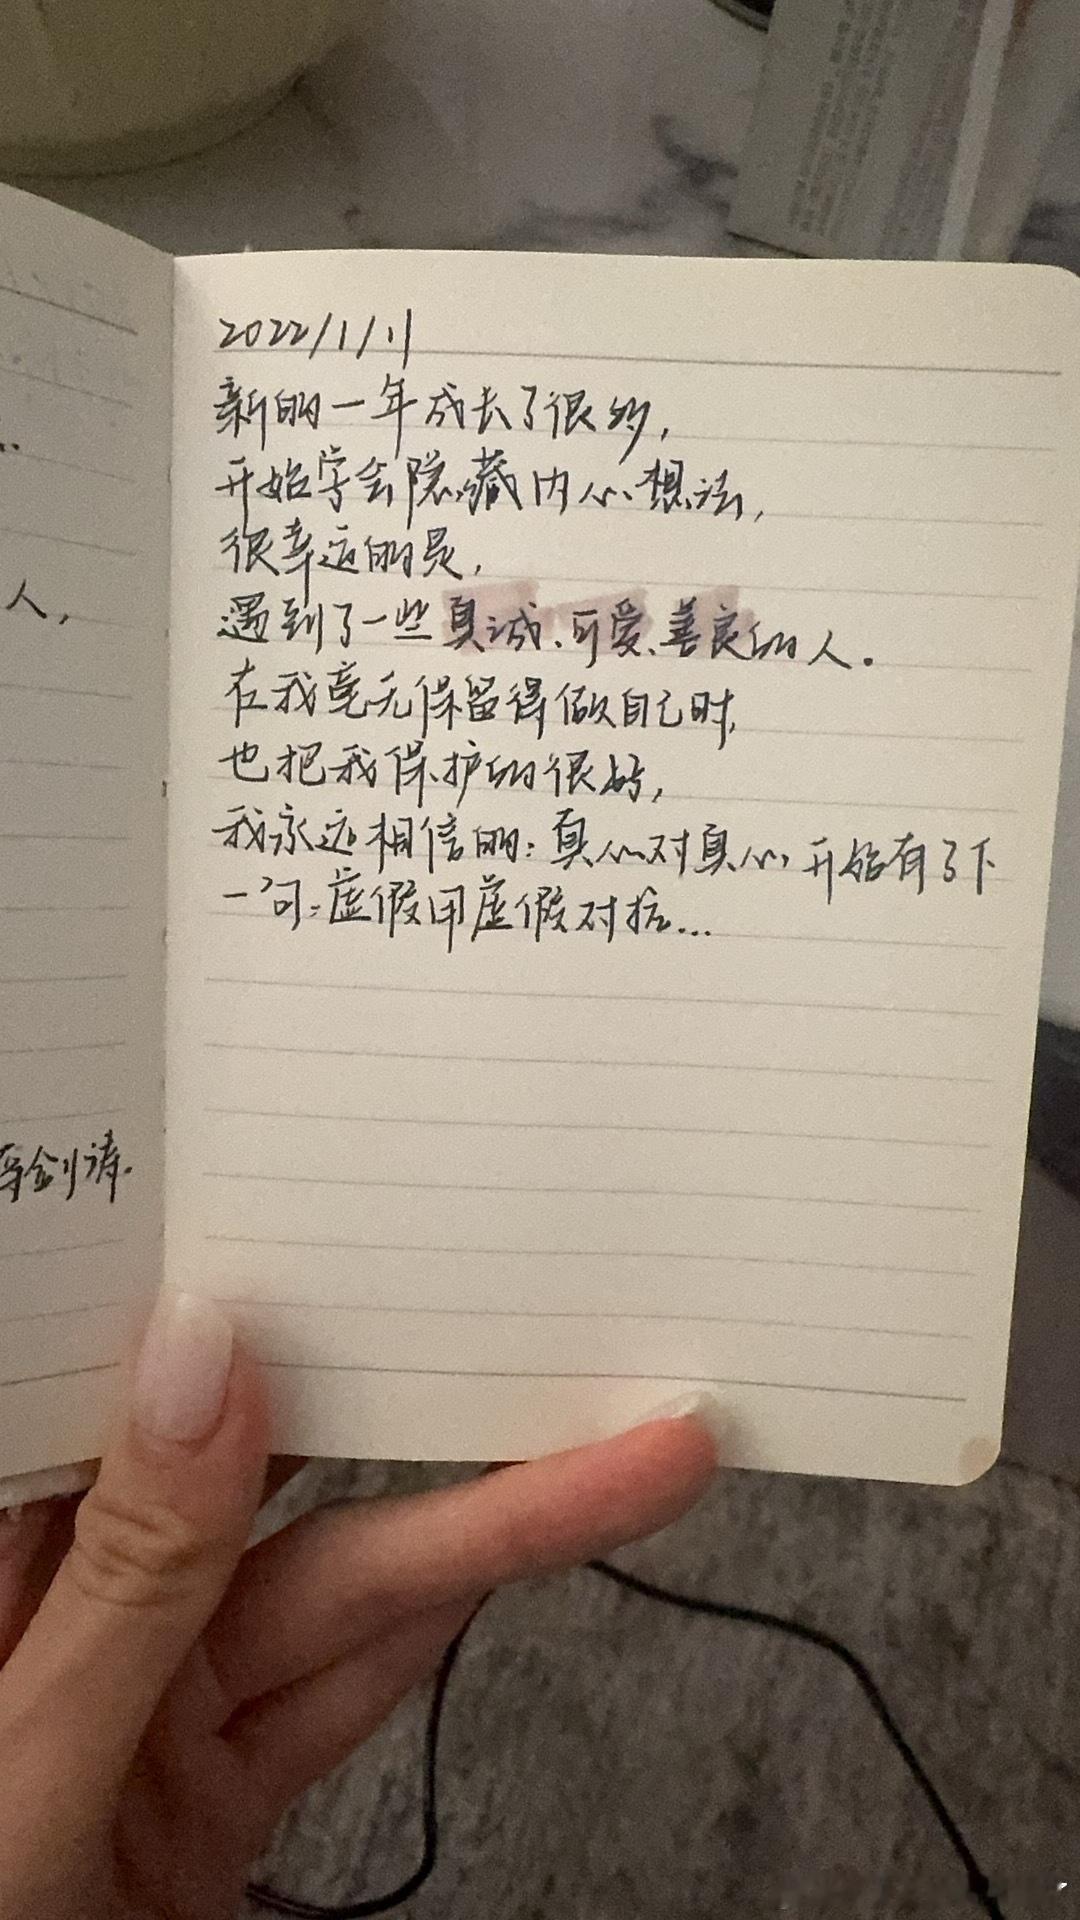 人，
剑诗.
2022/1/11
新的一年成长了很多，
开始学会隐藏内心想法，
很幸运的是，
遇到了一些真诚、可爱、善良的人.
在我毫无保留得做自己时，
也把我保护的很好，
我永远相信的：真心对真心 开始有了下
一句：虚假用虚假对抗...